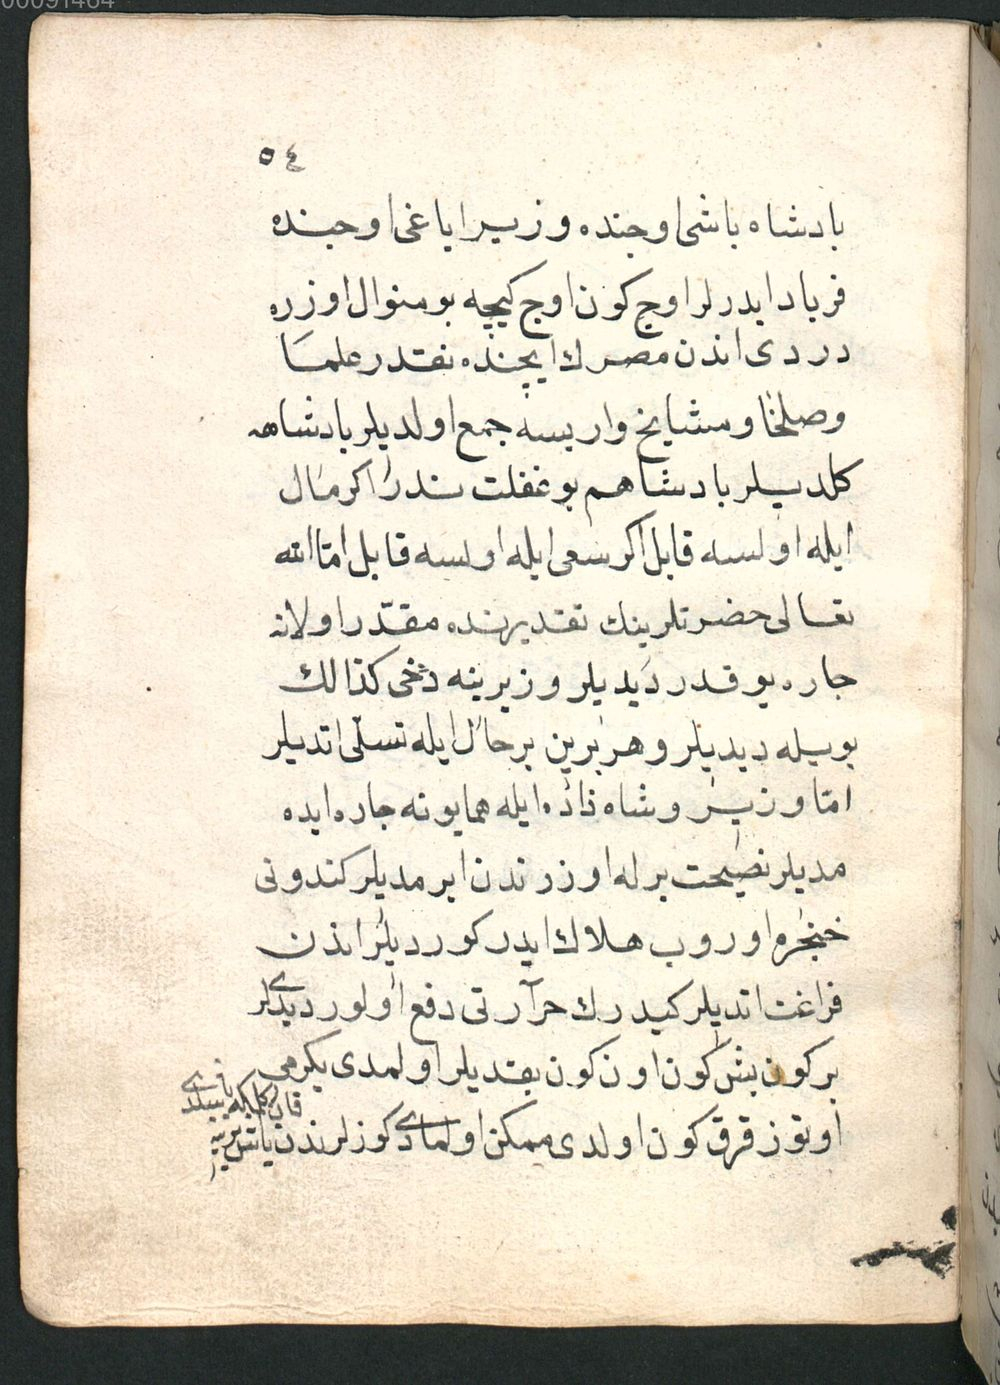 00091464
٥٤
بادشاه باشی اوجنده وزیر ایاغی اوجنده
فریاد ایدرلر اوج کون اوج کیچه بو منوال اوزره
دردی اندن مصرك ایچنده نقدر علما
وصلحا ومشایخ واریسه جمع اولدیلر بادشاهه
کلدیلر بادشاهم بو غفلت ندر اکر مال
ایله اولسه قابل اکر سعی ایله اولسه قابل امّا الله
تعالی حضرتلرینك تقدیرنده مقدّر اولانه
جاره یوقدر دیدیلر وزیرینه دخی کذالك
بویله دیدیلر وهر برین بر حال ایله تسلّی اتدیلر
امّا وزیر وشاه ذاده ایله همایونه جاره ایده
مدیلر نصیحت برله اوزرندن ایرمدیلر کندونی
خنجره اوروب هلاك ایدر کوردیلر اندن
فراغت اتدیلر کیدرك حرآرتی دفع اولور دیدیلر
بر کون بش کون اون کون بقدیلر اولمدی یکرمی
اوتوز قرق کون اولدی ممکن اولمادی کوزلرندن یاش یرینه
قان کلمکه باشلدی